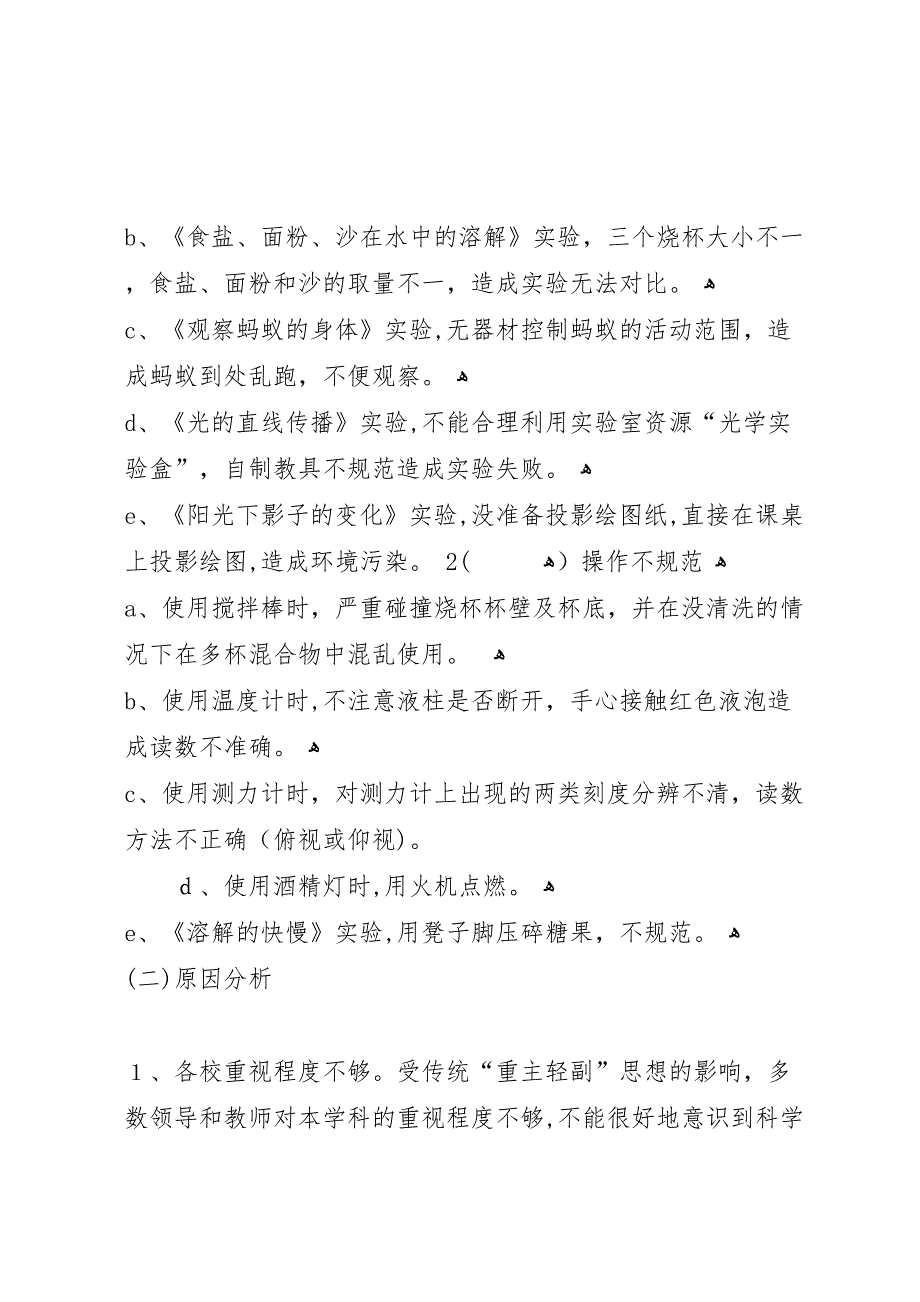 b、《食盐、面粉、沙在水中的溶解》实验，三个烧杯大小不一
，食盐、面粉和沙的取量不一，造成实验无法对比。 ﻫ
c、《观察蚂蚁的身体》实验,无器材控制蚂蚁的活动范围，造
成蚂蚁到处乱跑，不便观察。 ﻫ
d、《光的直线传播》实验,不能合理利用实验室资源“光学实
验盒”，自制教具不规范造成实验失败。 ﻫ
e、《阳光下影子的变化》实验,没准备投影绘图纸,直接在课桌
上投影绘图,造成环境污染。 2( ﻫ）操作不规范 ﻫ
a、使用搅拌棒时，严重碰撞烧杯杯壁及杯底，并在没清洗的情
况下在多杯混合物中混乱使用。 ﻫ
b、使用温度计时,不注意液柱是否断开，手心接触红色液泡造
成读数不准确。 ﻫ
c、使用测力计时，对测力计上出现的两类刻度分辨不清，读数
方法不正确（俯视或仰视)。
ｄ、使用酒精灯时,用火机点燃。 ﻫ
e、《溶解的快慢》实验,用凳子脚压碎糖果，不规范。 ﻫ
(二)原因分析
１、各校重视程度不够。受传统“重主轻副”思想的影响，多
数领导和教师对本学科的重视程度不够,不能很好地意识到科学